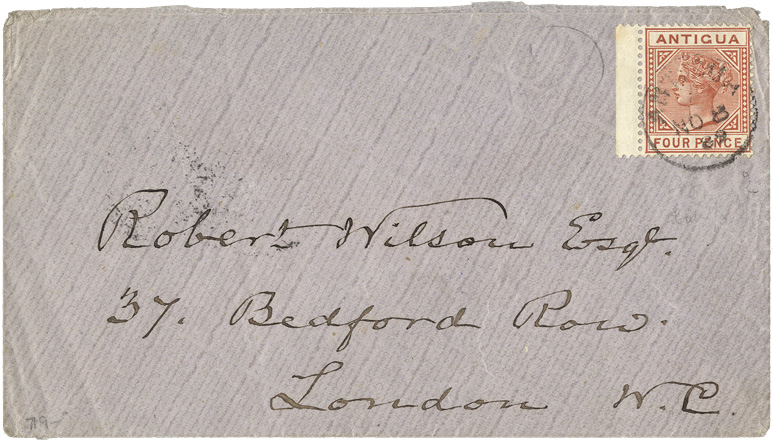 ANTIGUA
FOUR PENCE
NO 8
Robert Wilson Esqr.
37. Bedford Row.
London W.C.